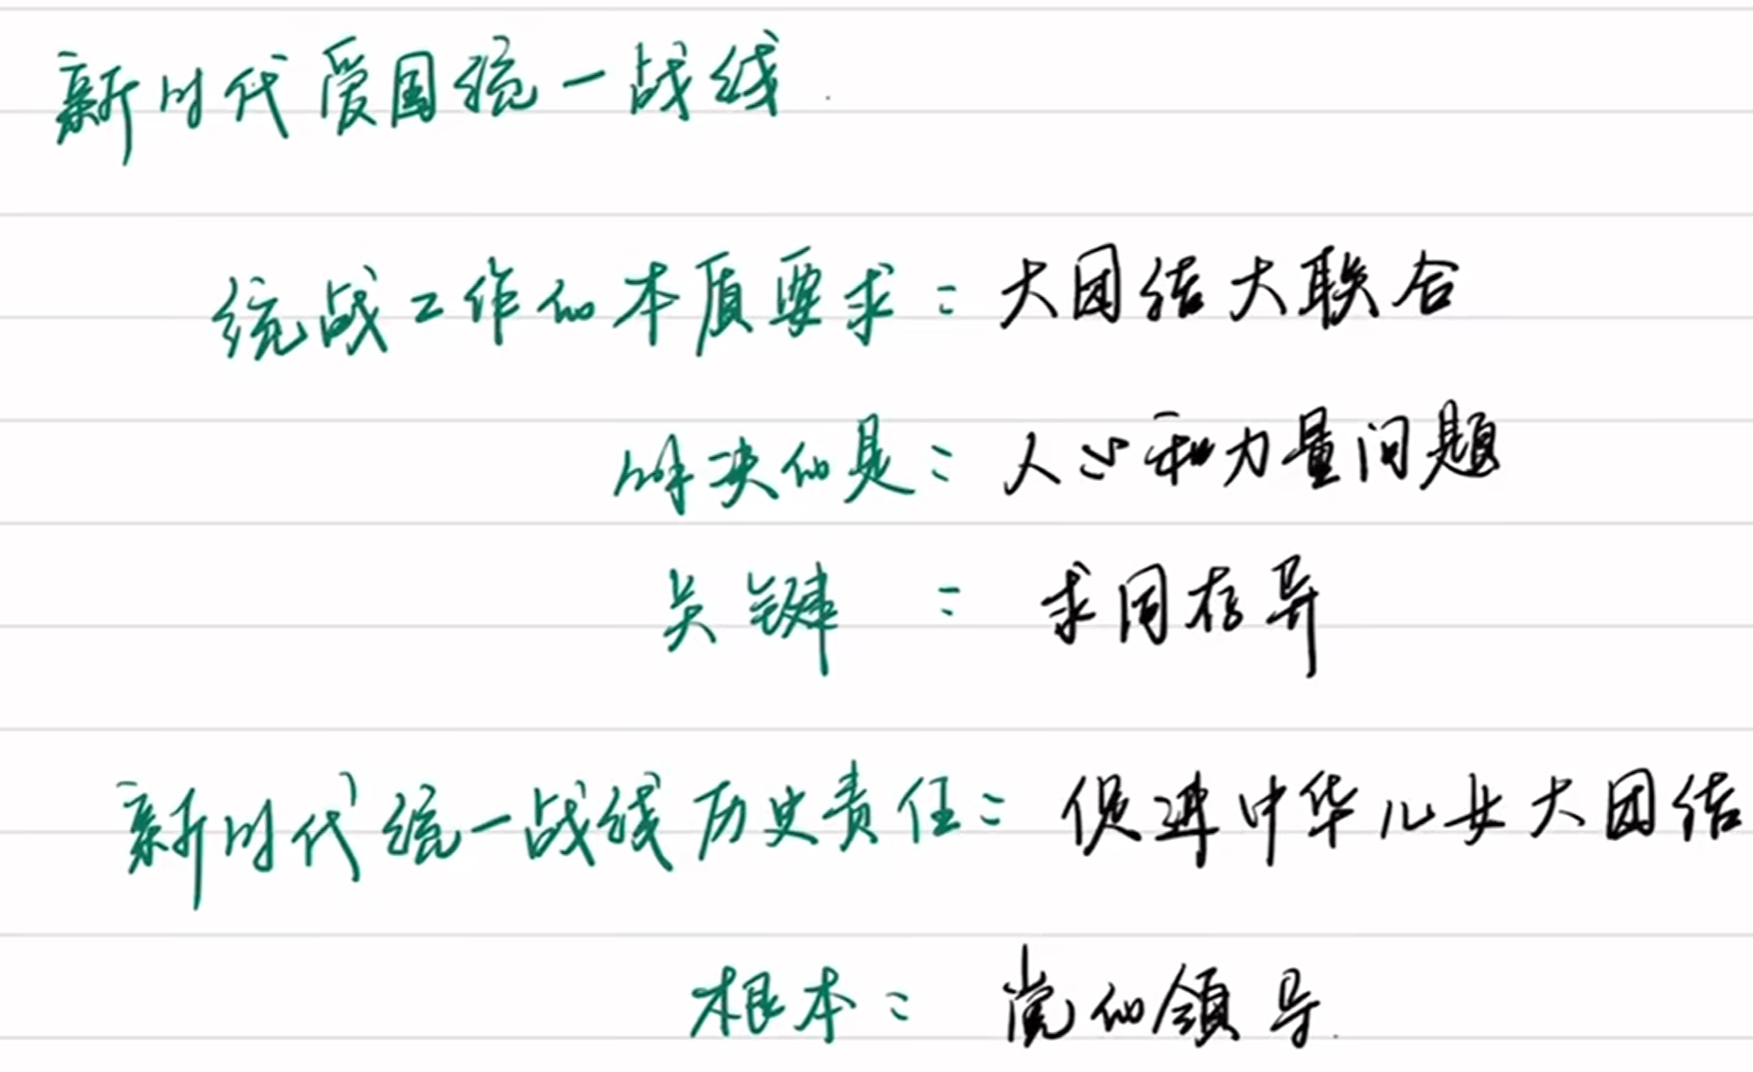 新时代爱国统一战线
统战工作的本质要求：大团结大联合
解决的是：人心和力量问题
关键：求同存异
新时代统一战线历史责任：促进中华儿女大团结
根本：党的领导